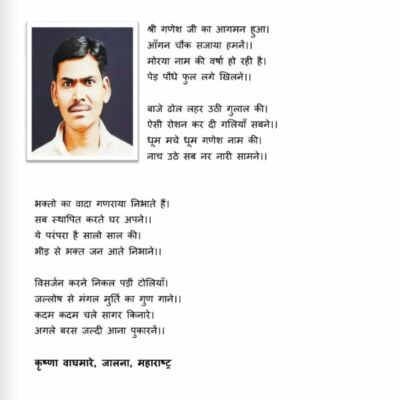 श्री गणेश जी का आगमन हुआ।
आँगन चौक सजाया हमनें।।
मोरया नाम की वर्षा हो रही है।
पेड़ पौधे फुल लगे खिलने।।
बाजे ढोल लहर उठी गुलाल की।
ऐसी रोशन कर दी गलियाँ सबने।।
धूम मचे धूम गणेश नाम की।
नाच उठे सब नर नारी सामने।।
भक्तो का वादा गणराया निभाते हैं।
सब स्थापित करते घर अपने।।
ये परंपरा है सालो साल की।
भीड़ से भक्त जन आते निभाने।।
विसर्जन करने निकल पड़ी टोलियाँ।
जल्लोष से मंगल मुर्ति का गुण गाने।।
कदम कदम चले सागर किनारे।
अगले बरस जल्दी आना पुकारनें।।
कृष्णा वाघमारे, जालना, महाराष्ट्र